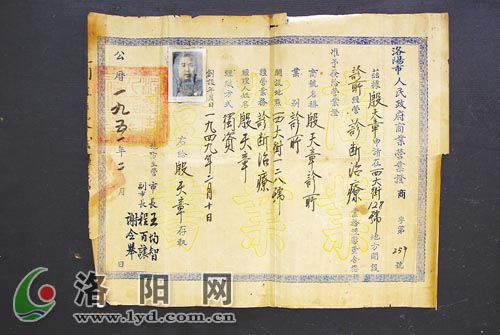 洛陽市人民政府商業營業證 商 字第 259 號
茲據 殷天章 申請在 西大街128號 地方開設
診所 經營 診断治療
准予發給營業證
商號名稱 殷天章診所
業别 診所
開設地點 西大街一二八號
經營業務 診断治療
經理人姓名 殷天章
組織方式 獨資
創設年月日 一九四九年二月十日
右給 殷天章 存執
市長 王均智
副市長 程百讓
公曆 一九五一年二月 日
洛阳网
www.lyd.com.cn